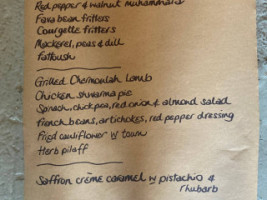 Red pepper & walnut muhammara
Fava bean fritters
Courgette fritters
Mackerel, peas & dill
Fattoush
Grilled Chermoulah lamb
Chicken shwarma pie
Spinach, chickpea, red onion & almond salad
french beans, artichokes, red pepper dressing
Fried cauliflower w tawn
Herb pilaff
Saffron crème caramel w pistachio &
rhubarb